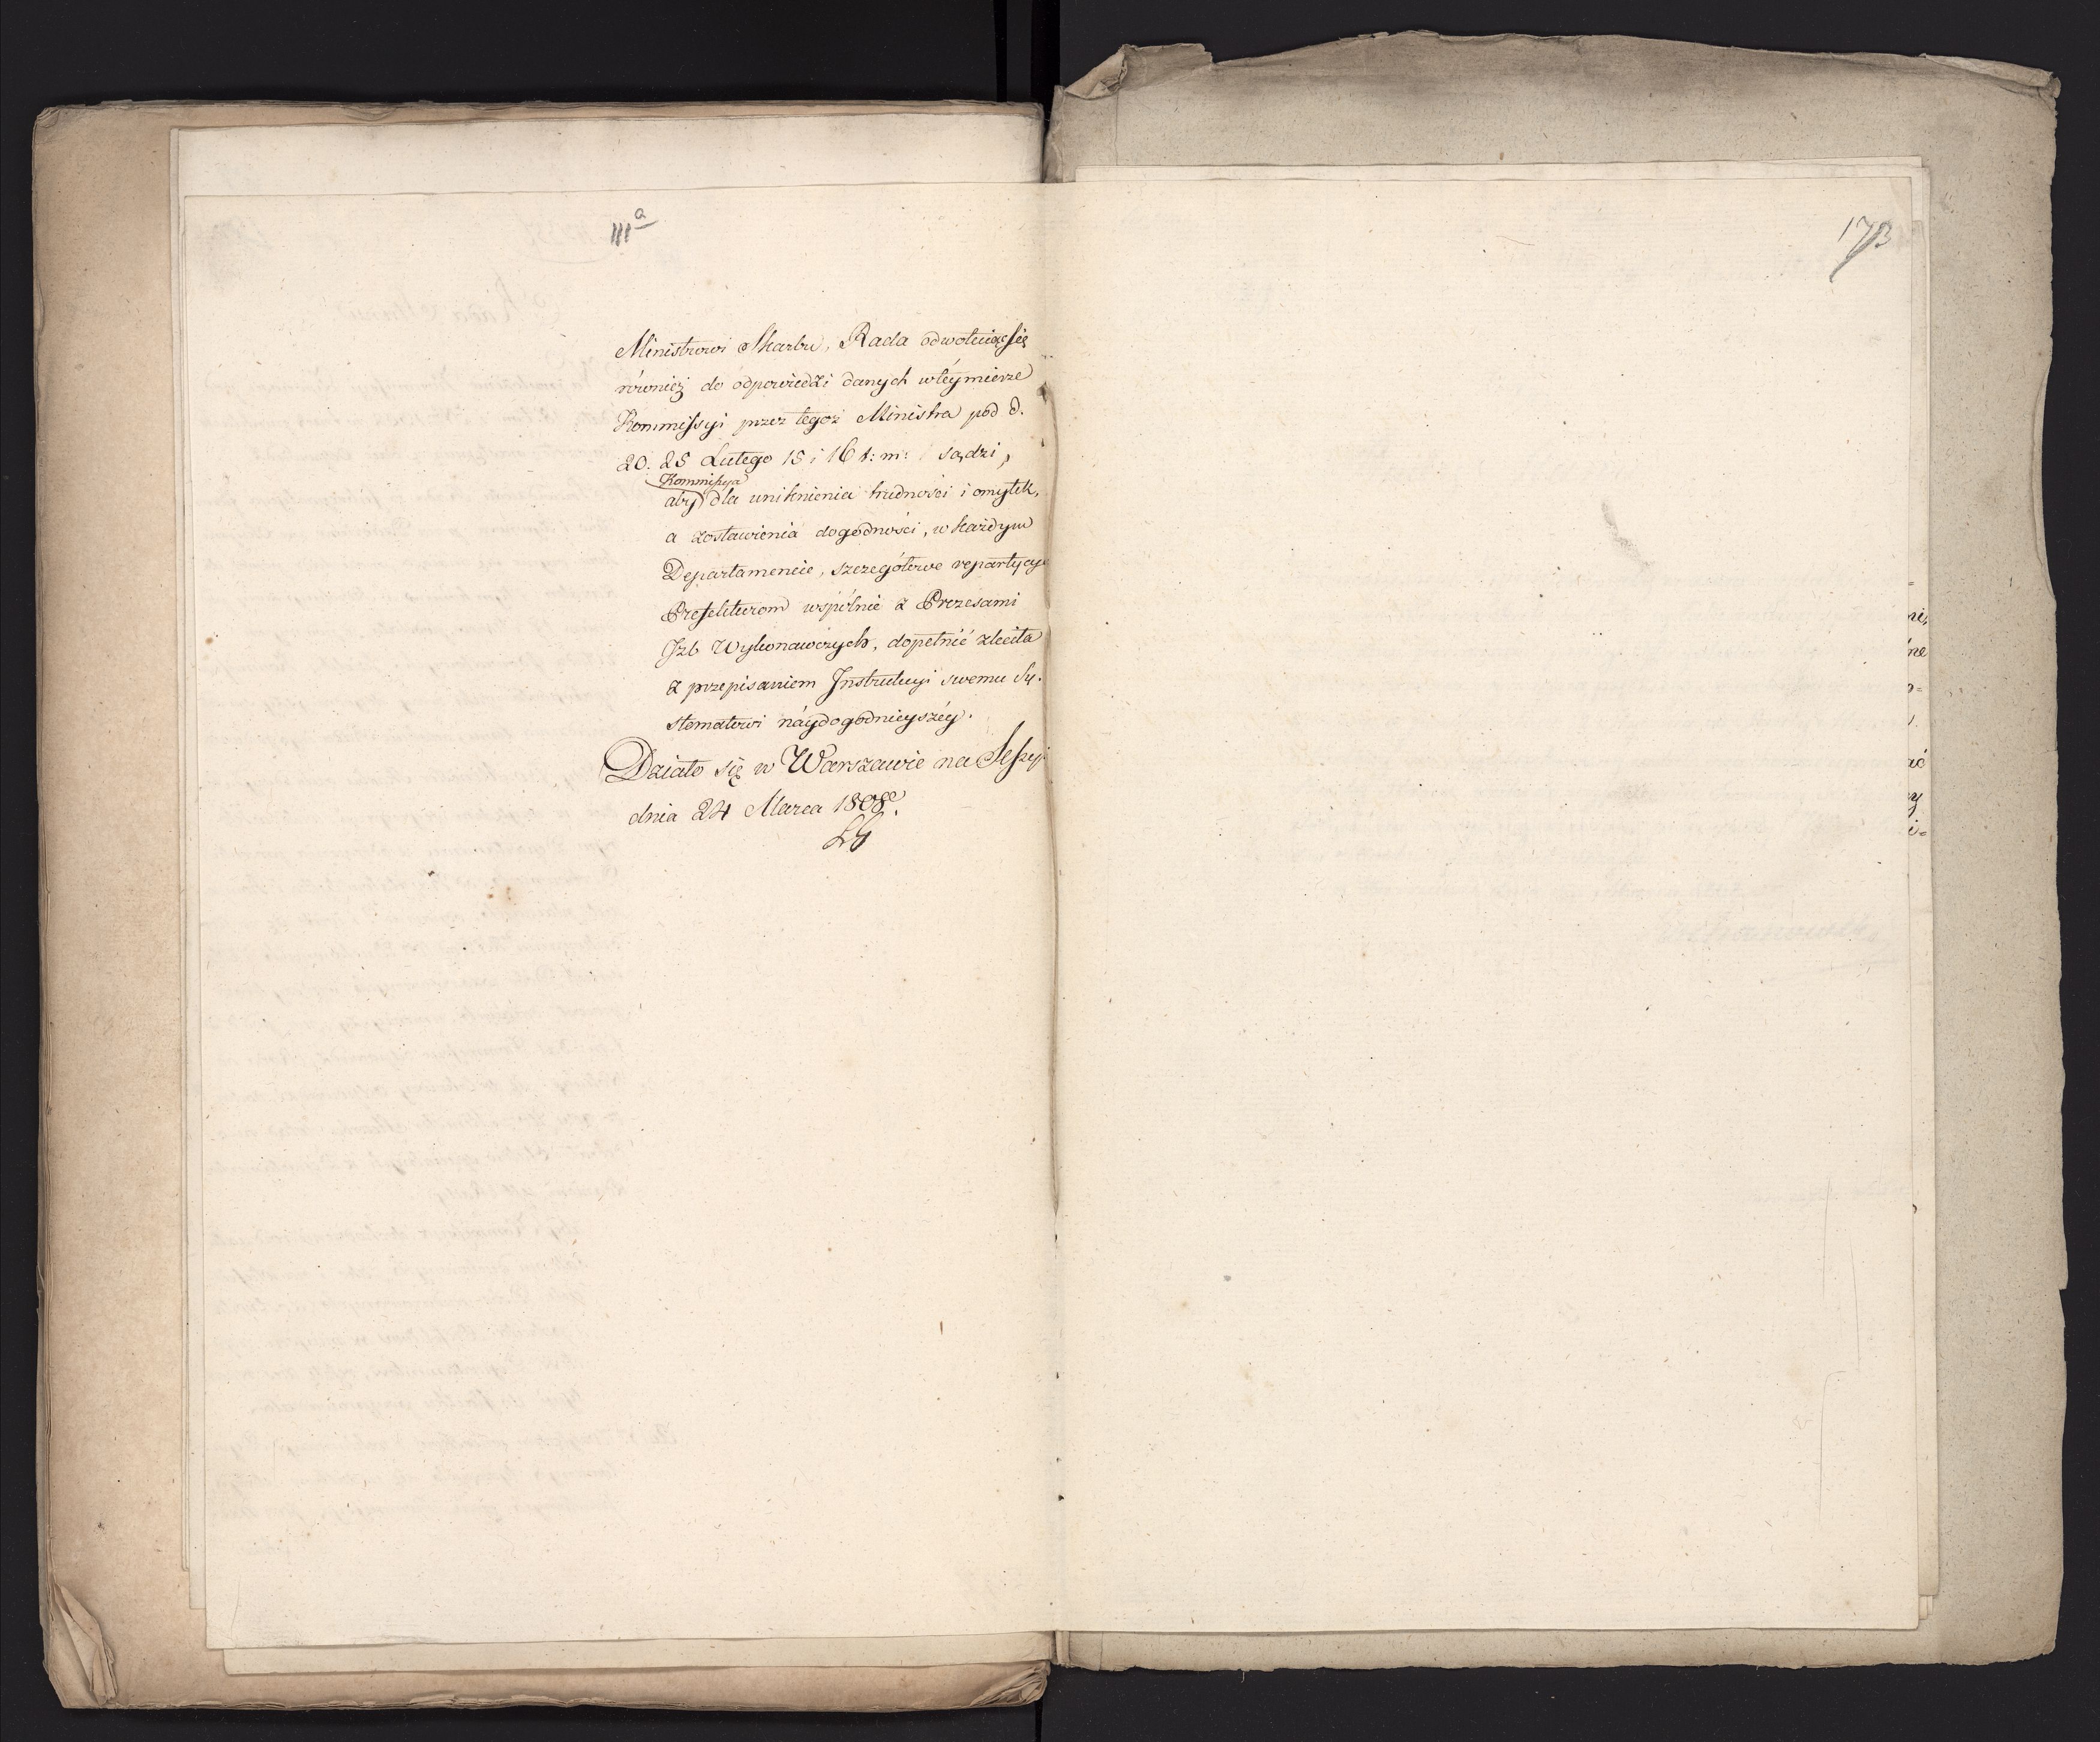 111a
Ministrowi Skarbu, Rada odwołuiąc się
równiez do odpowiedzi danych w téy mierze
Kommissyi przez tegoż Ministra pod d.
20. 25 Lutego 15 i 16 t: m: sądzi,
Kommissya
aby dla uniknienia trudności i omyłek,
a zostawienia dogodności, w każdym
Departamencie, szczegółowe repartycye
Prefekturom wspólnie z Prezesami
Izb Wykonawczych, dopełnić zleciła
z przepisaniem Instrukcyi swemu Sy-
stematowi náydogodnieyszéy.
Działo się w Warszawie na Sessyi
dnia 24 Marca 1808.
173